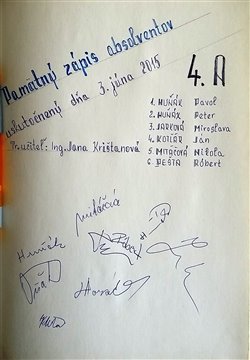 Pamätný zápis absolventov
uskutočnený dňa 3. júna 2015
Tr. učiteľ: Ing. Jana Krištanová
4. A
1. HUŇÁK Pavol
2. HUŇÁK Peter
3. JARKOVÁ Miroslava
4. KOTLÁR Ján
5. MITAĽOVÁ Nikola
6. PEŠTA Róbert
Huňák
Horvát